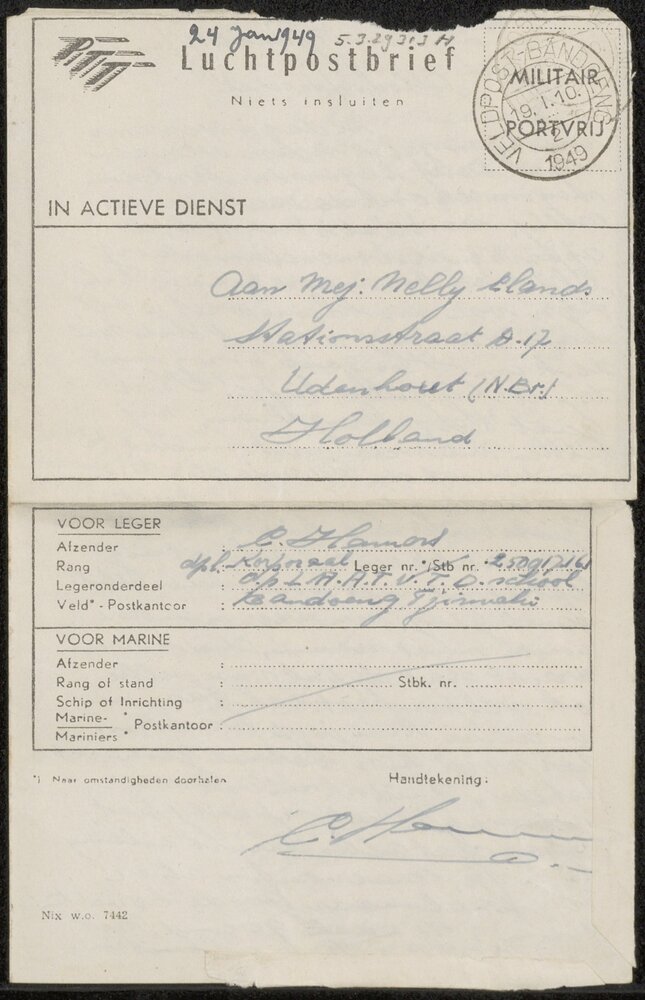 24 Jan 1949 5.3.29313 H
PTT
Luchtpostbrief
Niets insluiten
VELDPOST-BANDOENG
MILITAIR
19.1.10.
PORTVRIJ
2
1949
IN ACTIEVE DIENST
Aan Mej: Nelly Elands
Stationsstraat A.17
Udenhout (N.Br.)
Holland
VOOR LEGER
Afzender : C. Hamers
Rang dpl. Korporaal Leger nr.*/Stb nr.
Legeronderdeel : A.A.T. V.T.O. school
Veld* - Postkantoor : Bandoeng
VOOR MARINE
Afzender :
Rang of stand : Stbk. nr.
Schip of Inrichting :
Marine- * Postkantoor :
Mariniers *
*) Naar omstandigheden doorhalen
Handtekening:
Nix w.o. 7442